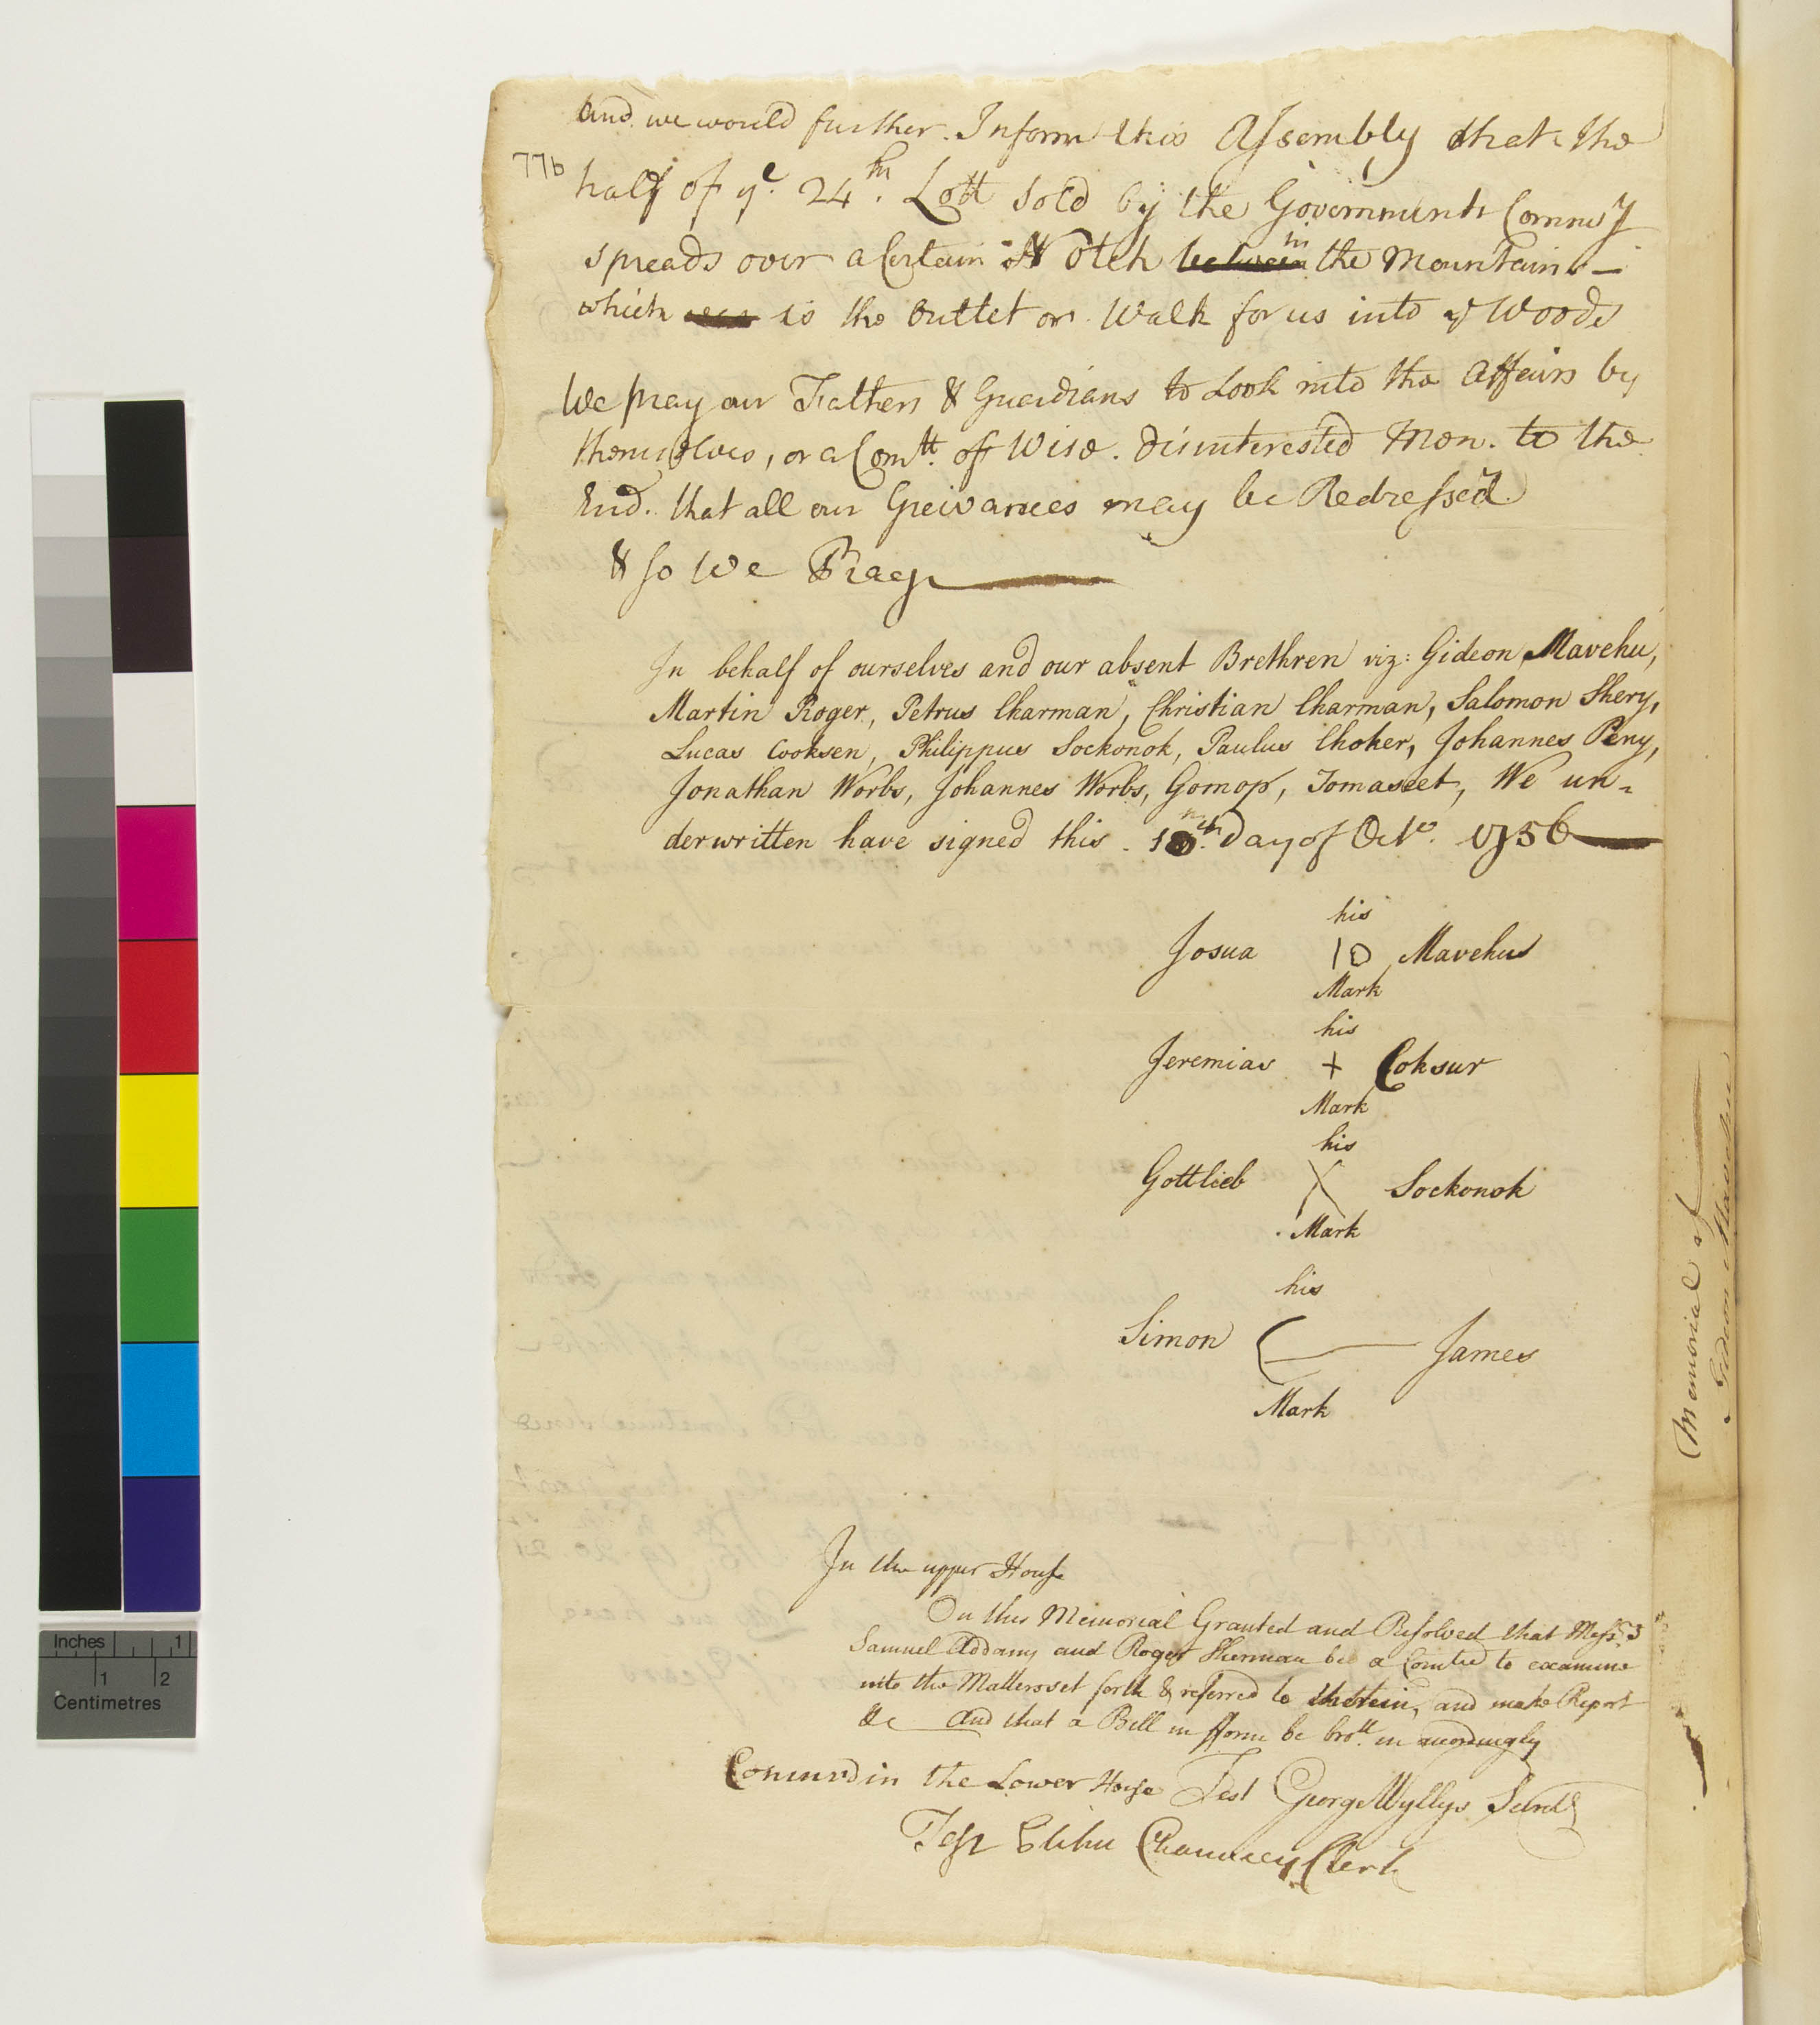 and we would further Inform this Assembly that the
77b
half of ye. 24th. Lott sold by the Governments Commtt
spreads over a Certain Notch between in the Mountains —
which was is the outlet or Walk for us into ye Woods
We pray our Fathers & Guardians to Look into the Affairs by
themselves, or a Comtt. of Wise. disinterested Men. to the
End. that all our Greivances may be Redressed.
& so We Pray
In behalf of ourselves and our absent Brethren viz: Gideon Mavehu,
Martin Roger, Petrus Charman, Christian Charman, Salomon Shery,
Lucas Cooksen, Philippus Sockonok, Paulus Choker, Johannes Peny,
Jonathan Worbs, Johannes Worbs, Gomop, Tomaseet, We un-
derwritten have signed this Day of Octo. 1756
his
Josua 10 Mavehus
Mark
his
Jeremias + Coksur
Mark
his
Gottlieb X Sockonok
Mark
his
Simon James
Mark
In the upper House
On this Memorial Granted and Resolved that Messrs
Samuel Addams and Roger Sherman be a Comtee to examine
into the Matters set forth & referred to therein, and make Report
&c And that a Bill in fform be brott in accordingly
Concurrd in the Lower House Test George Wyllys Secret
Test Elihu Chauncey Clerk
Memorial of
Gideon Mavehu
Inches 1
1 2
Centimetres